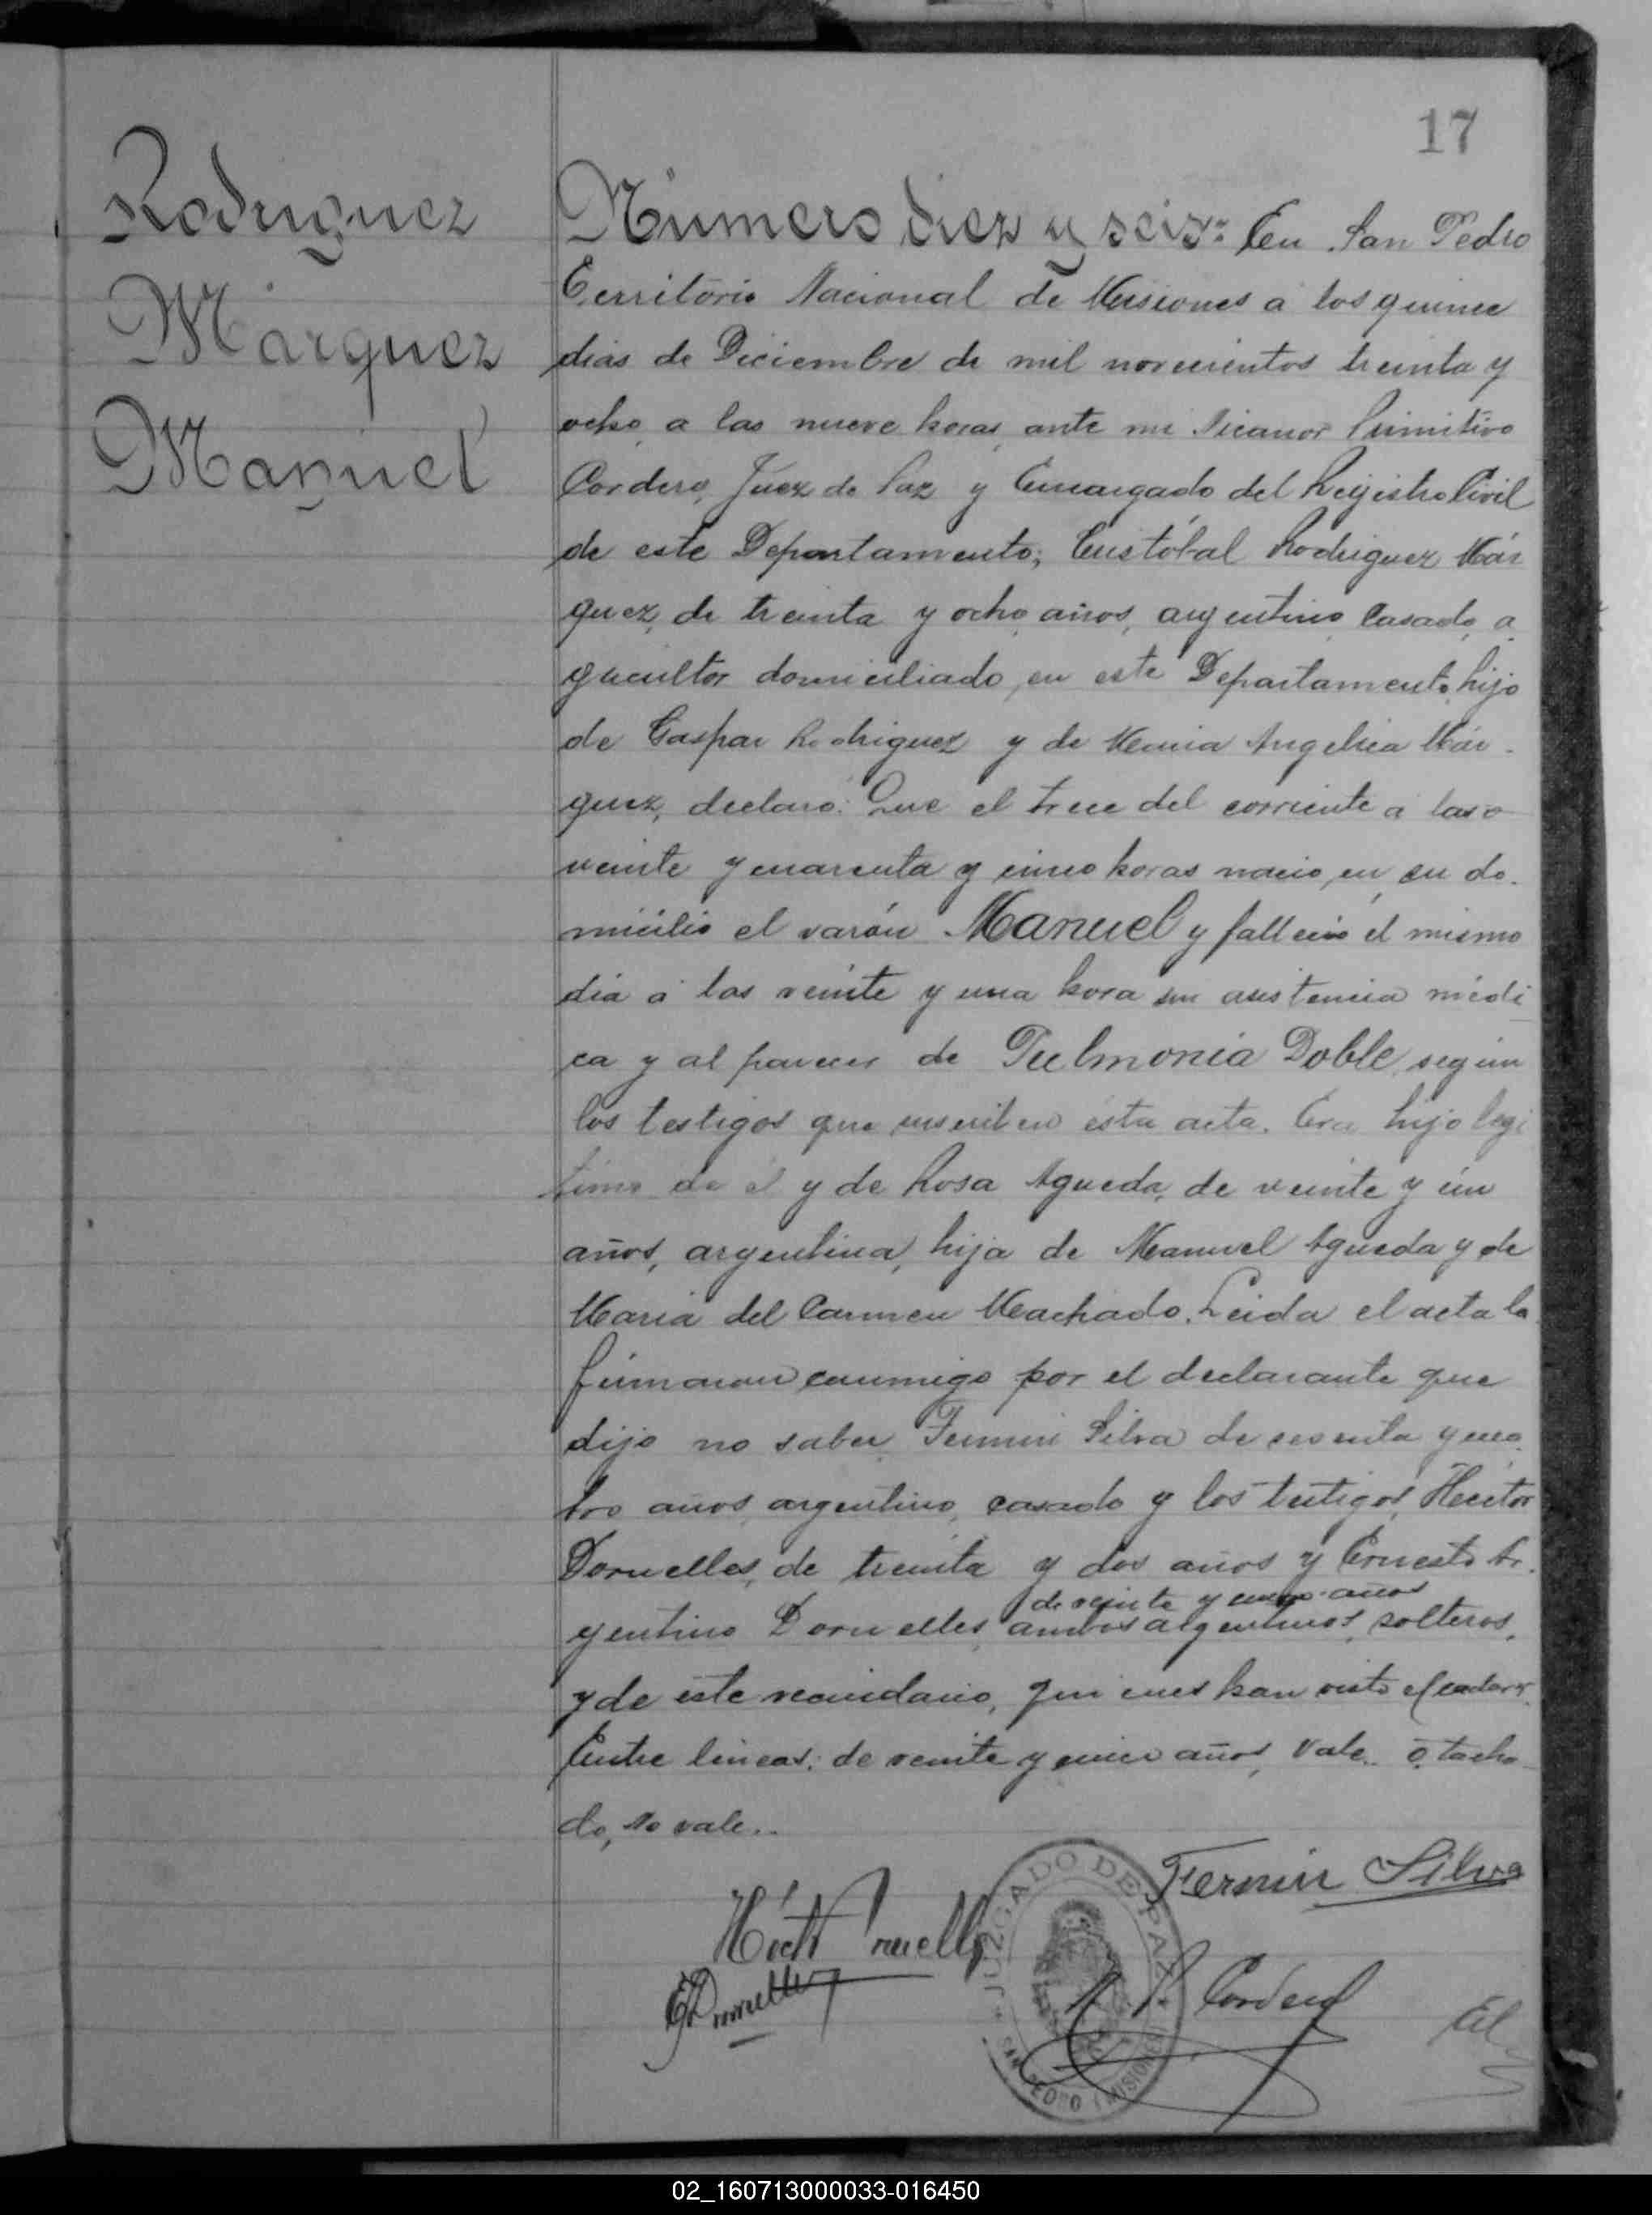 17
Rodriguez
Márquez
Manuel
Número diez y seis: En San Pedro
Territorio Nacional de Misiones a los quince
dias de Diciembre de mil novecientos treinta y
ocho a las nueve horas, ante mi Nicanor Primitivo
Cordero, Juez de Paz y Encargado del Registro Civil
de este Departamento; Cristóbal Rodriguez Már
quez, de treinta y ocho años, argentino casado, a
gricultor domiciliado en este Departamento, hijo
de Gaspar Rodriguez y de Maria Angelica Már-
quez, declaró: Que el trece del corriente a las o
veinte y cuarenta y cinco horas nació en su do-
micilio el varón Manuel y falleció el mismo
dia a las veinte y una hora sin asistencia médi
ca y al parecer de Pulmonia Doble, según
los testigos que suscriben esta acta. Era hijo legi
timo de el y de Rosa Agueda, de veinte y un
años, argentina, hija de Manuel Agueda y de
Maria del Carmen Machado. Leida el acta la
firmaron conmigo por el declarante que
dijo no saber Fermin Silva de sesenta y cua
tro años, argentino, casado y los testigos, Hector
Dornelles, de treinta y dos años y Ernesto Ar
de veinte y cinco años
gentino Dornelles, ambos argentinos, solteros,
y de este vecindario, quienes han visto el cadaver.
Entre lineas: de veinte y cinco años, Vale.. o, tacha
do, No vale..
Fermin Silva
Héctor Dornelles
E. Dornelles
N. P. Cordero
JUZGADO DE PAZ
SAN PEDRO (MISIONES)
02_160713000033-016450